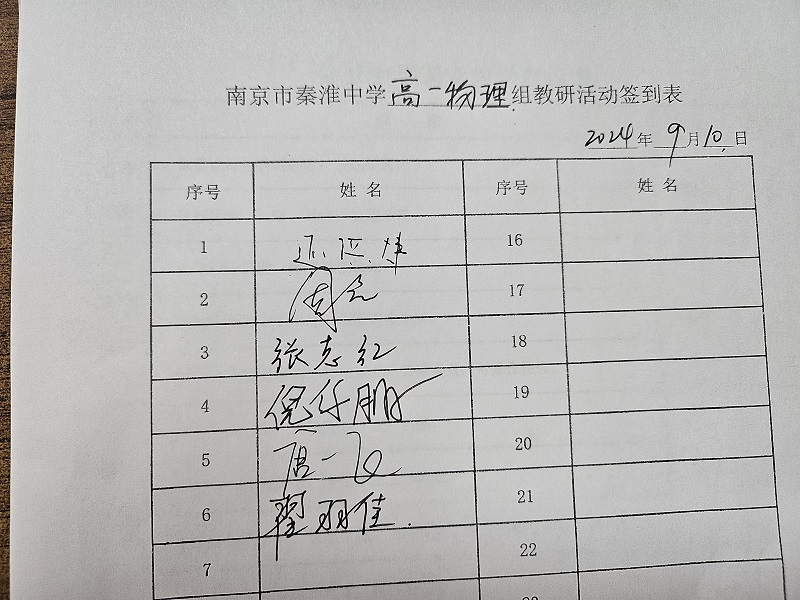 南京市秦淮中学高一物理组教研活动签到表
2024年9月10日
序号 姓名 序号 姓名
1 16
2 周 17
3 张志红 18
4 倪 鹏 19
5 高一飞 20
6 翟羽佳. 21
7 22